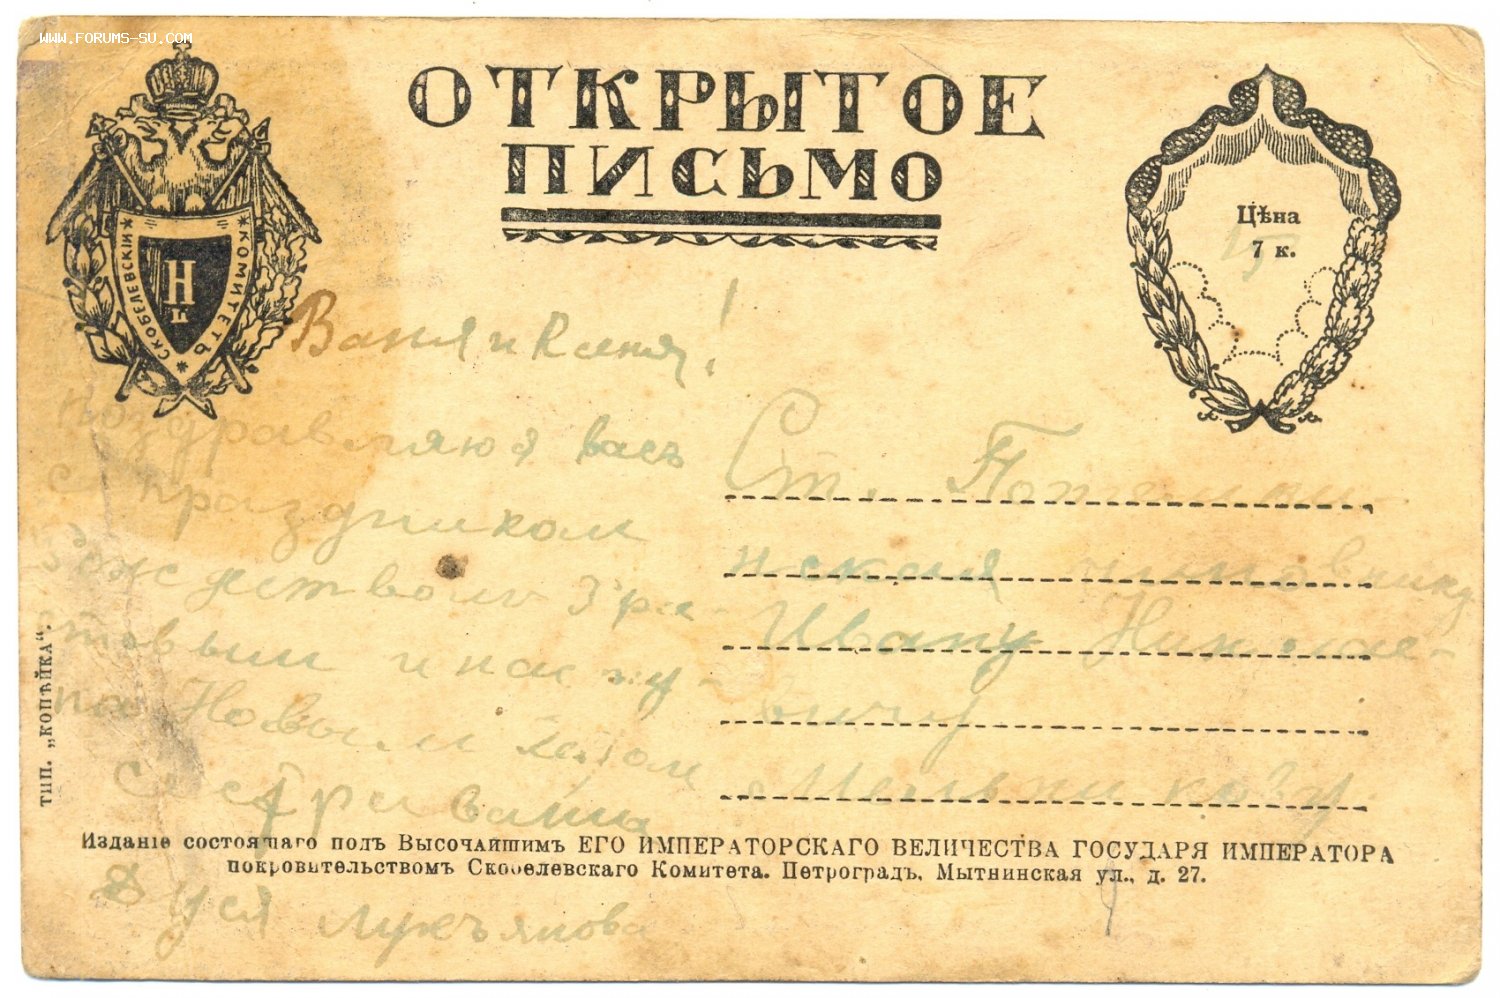 WWW.FORUMS-SU.COM
ОТКРЫТОЕ
ПИСЬМО
СКОБЕЛЕВСКІЙ КОМИТЕТЪ
Цѣна
7 к.
Ваня и Ксеня!
поздравляю васъ
с праздником
товым и насту-
па Новым
Сестра ваша
Дуся Лукъянова
Ст.
Ивану Николае-
вичу
Мельникову
тип. „КОПѢЙКА“.
Изданіе состоящаго подъ Высочайшимъ ЕГО ИМПЕРАТОРСКАГО ВЕЛИЧЕСТВА ГОСУДАРЯ ИМПЕРАТОРА
покровительствомъ Скобелевскаго Комитета. Петроградъ, Мытнинская ул., д. 27.